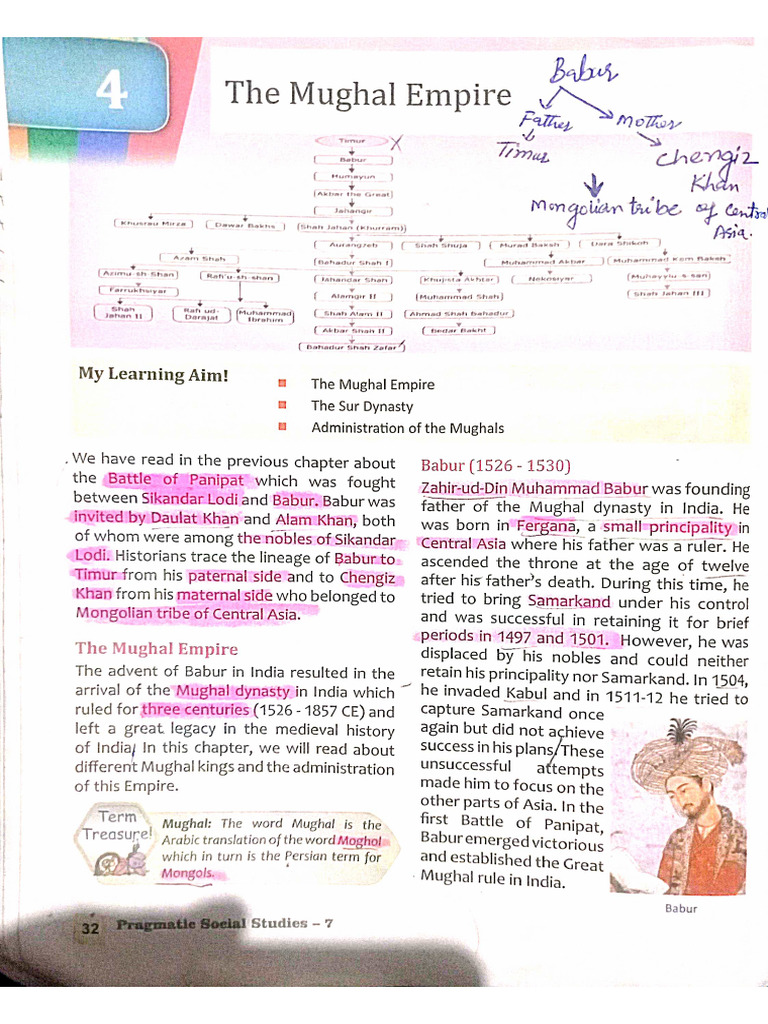 4
The Mughal Empire
Babur
Father
Mother
Timur
Chengiz
Khan
Mongolian tribe of Central
Asia.
Timur
Babur
Humayun
Akbar the Great
Jahangir
Khusrau Mirza
Dawar Bakhs
Shah Jahan (Khurram)
Aurangzeb
Shah Shuja
Murad Baksh
Dara Shikoh
Azam Shah
Bahadur Shah I
Muhammad Akbar
Muhammad Kam Baksh
Azimu-sh-Shan
Rafi'u-sh-shan
Jahandar Shan
Khujista Akhtar
Nekosiyar
Muhayylu-s-san
Farrukhsiyar
Alamgir II
Muhammad Shah
Shah Jahan III
Shah
Jahan II
Rafi ud-
Darajat
Muhammad
Ibrahim
Shah Alam II
Ahmad Shah Bahadur
Akbar Shah II
Bedar Bakht
Bahadur Shah Zafar
My Learning Aim!
The Mughal Empire
The Sur Dynasty
Administration of the Mughals
We have read in the previous chapter about
the Battle of Panipat which was fought
between Sikandar Lodi and Babur. Babur was
invited by Daulat Khan and Alam Khan, both
of whom were among the nobles of Sikandar
Lodi. Historians trace the lineage of Babur to
Timur from his paternal side and to Chengiz
Khan from his maternal side who belonged to
Mongolian tribe of Central Asia.
The Mughal Empire
The advent of Babur in India resulted in the
arrival of the Mughal dynasty in India which
ruled for three centuries (1526 - 1857 CE) and
left a great legacy in the medieval history
of India. In this chapter, we will read about
different Mughal kings and the administration
of this Empire.
Term
Treasure!
Mughal: The word Mughal is the
Arabic translation of the word Moghol
which in turn is the Persian term for
Mongols.
Babur (1526 - 1530)
Zahir-ud-Din Muhammad Babur was founding
father of the Mughal dynasty in India. He
was born in Fergana, a small principality in
Central Asia where his father was a ruler. He
ascended the throne at the age of twelve
after his father's death. During this time, he
tried to bring Samarkand under his control
and was successful in retaining it for brief
periods in 1497 and 1501. However, he was
displaced by his nobles and could neither
retain his principality nor Samarkand. In 1504,
he invaded Kabul and in 1511-12 he tried to
capture Samarkand once
again but did not achieve
success in his plans. These
unsuccessful attempts
made him to focus on the
other parts of Asia. In the
first Battle of Panipat,
Babur emerged victorious
and established the Great
Mughal rule in India.
Babur
32 Pragmatic Social Studies – 7